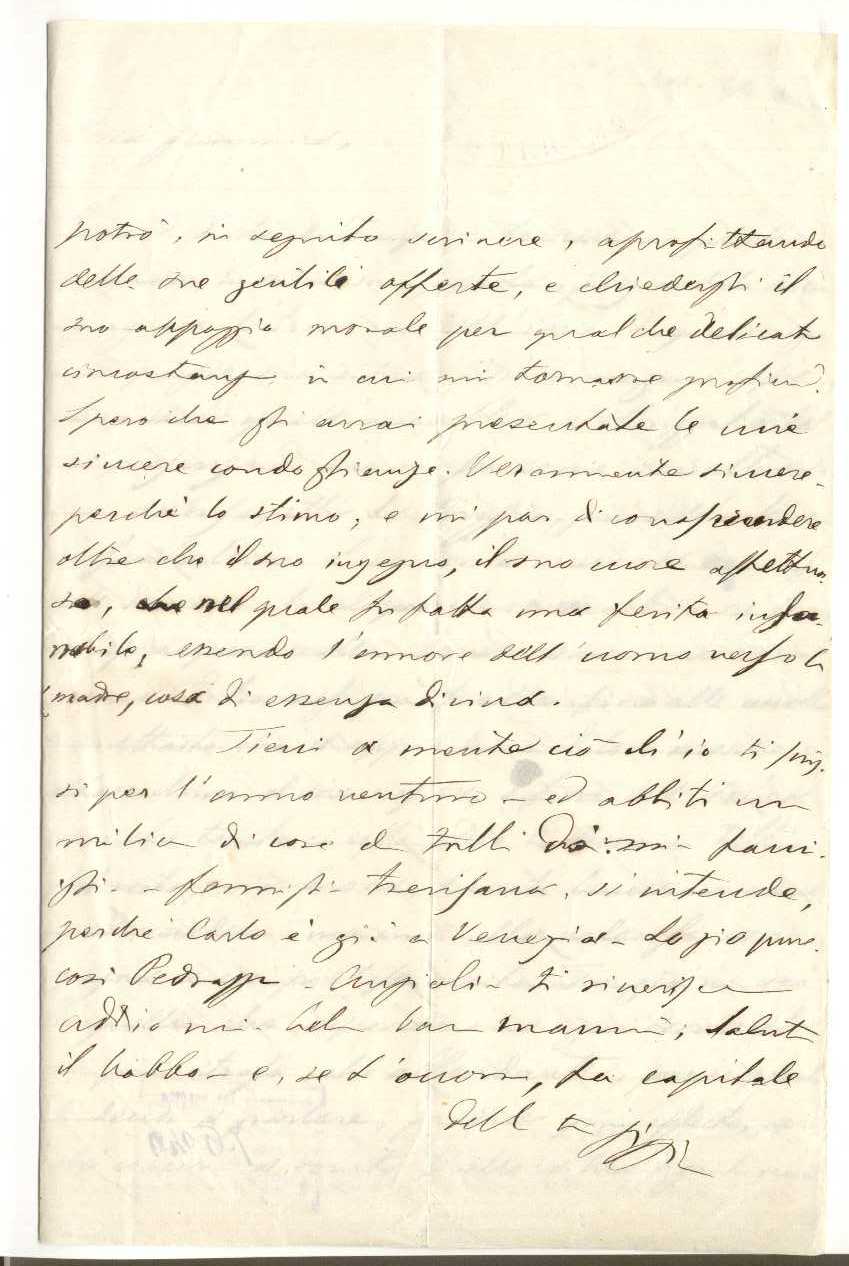 potrò, in seguito scrivere, aprofittando
delle sue gentili offerte, e chiedergli il
suo appoggio morale per qualche delicata
circostanza in cui mi tornasse
Spero che gli avrai presentate le mie
sincere condoglianze. Veramente sincere -
perchè lo stimo, e mi par di comprendere
oltre che il suo ingegno, il suo cuore affettuo-
so, nel quale fu fatta una ferita insa-
nabile, essendo l'amore dell'uomo verso la
madre, cosa di essenza divina.
Tieni a mente ciò ch'io ti
si per l'anno venturo - ed abbiti un
milion di cose da tutti mia fami-
glia - famiglia trevisana, si intende,
perchè Carlo è già a Venezia - Lo zio pure.
così - ti
addio mia bella cara mamma; saluta
il babbo - e, se t'occorre, fa capitale
del tuo